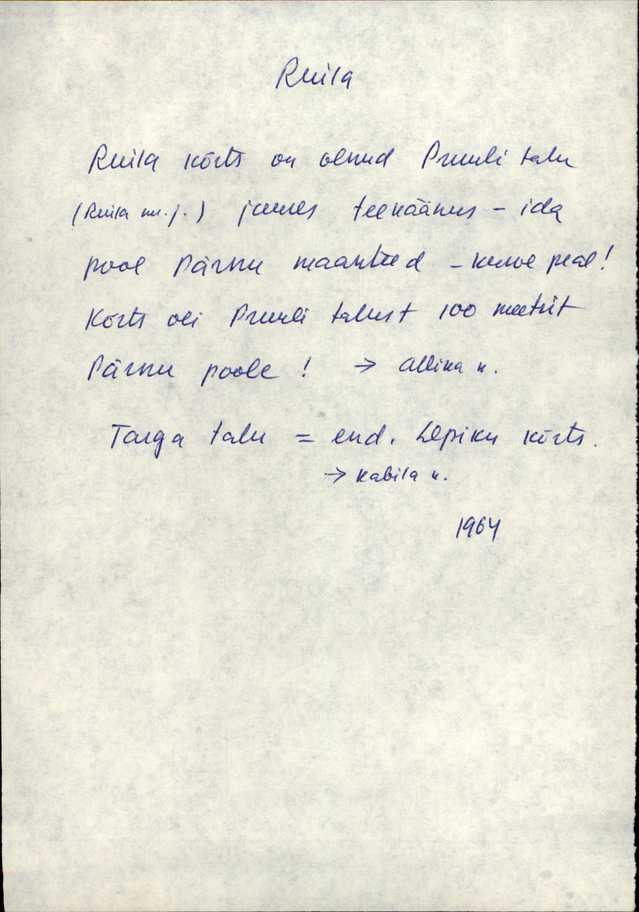 Ruila
Ruila kõrts on olnud Pruuli talu
(Ruila as. j.) juures teekäänus – ida
pool Pärnu maanteed – peal!
Kõrts oli Pruuli talust 100 meetrit
Pärnu poole! → Allika k.
Targa talu = end. Lepiku kõrts.
→ Kabila k.
1964